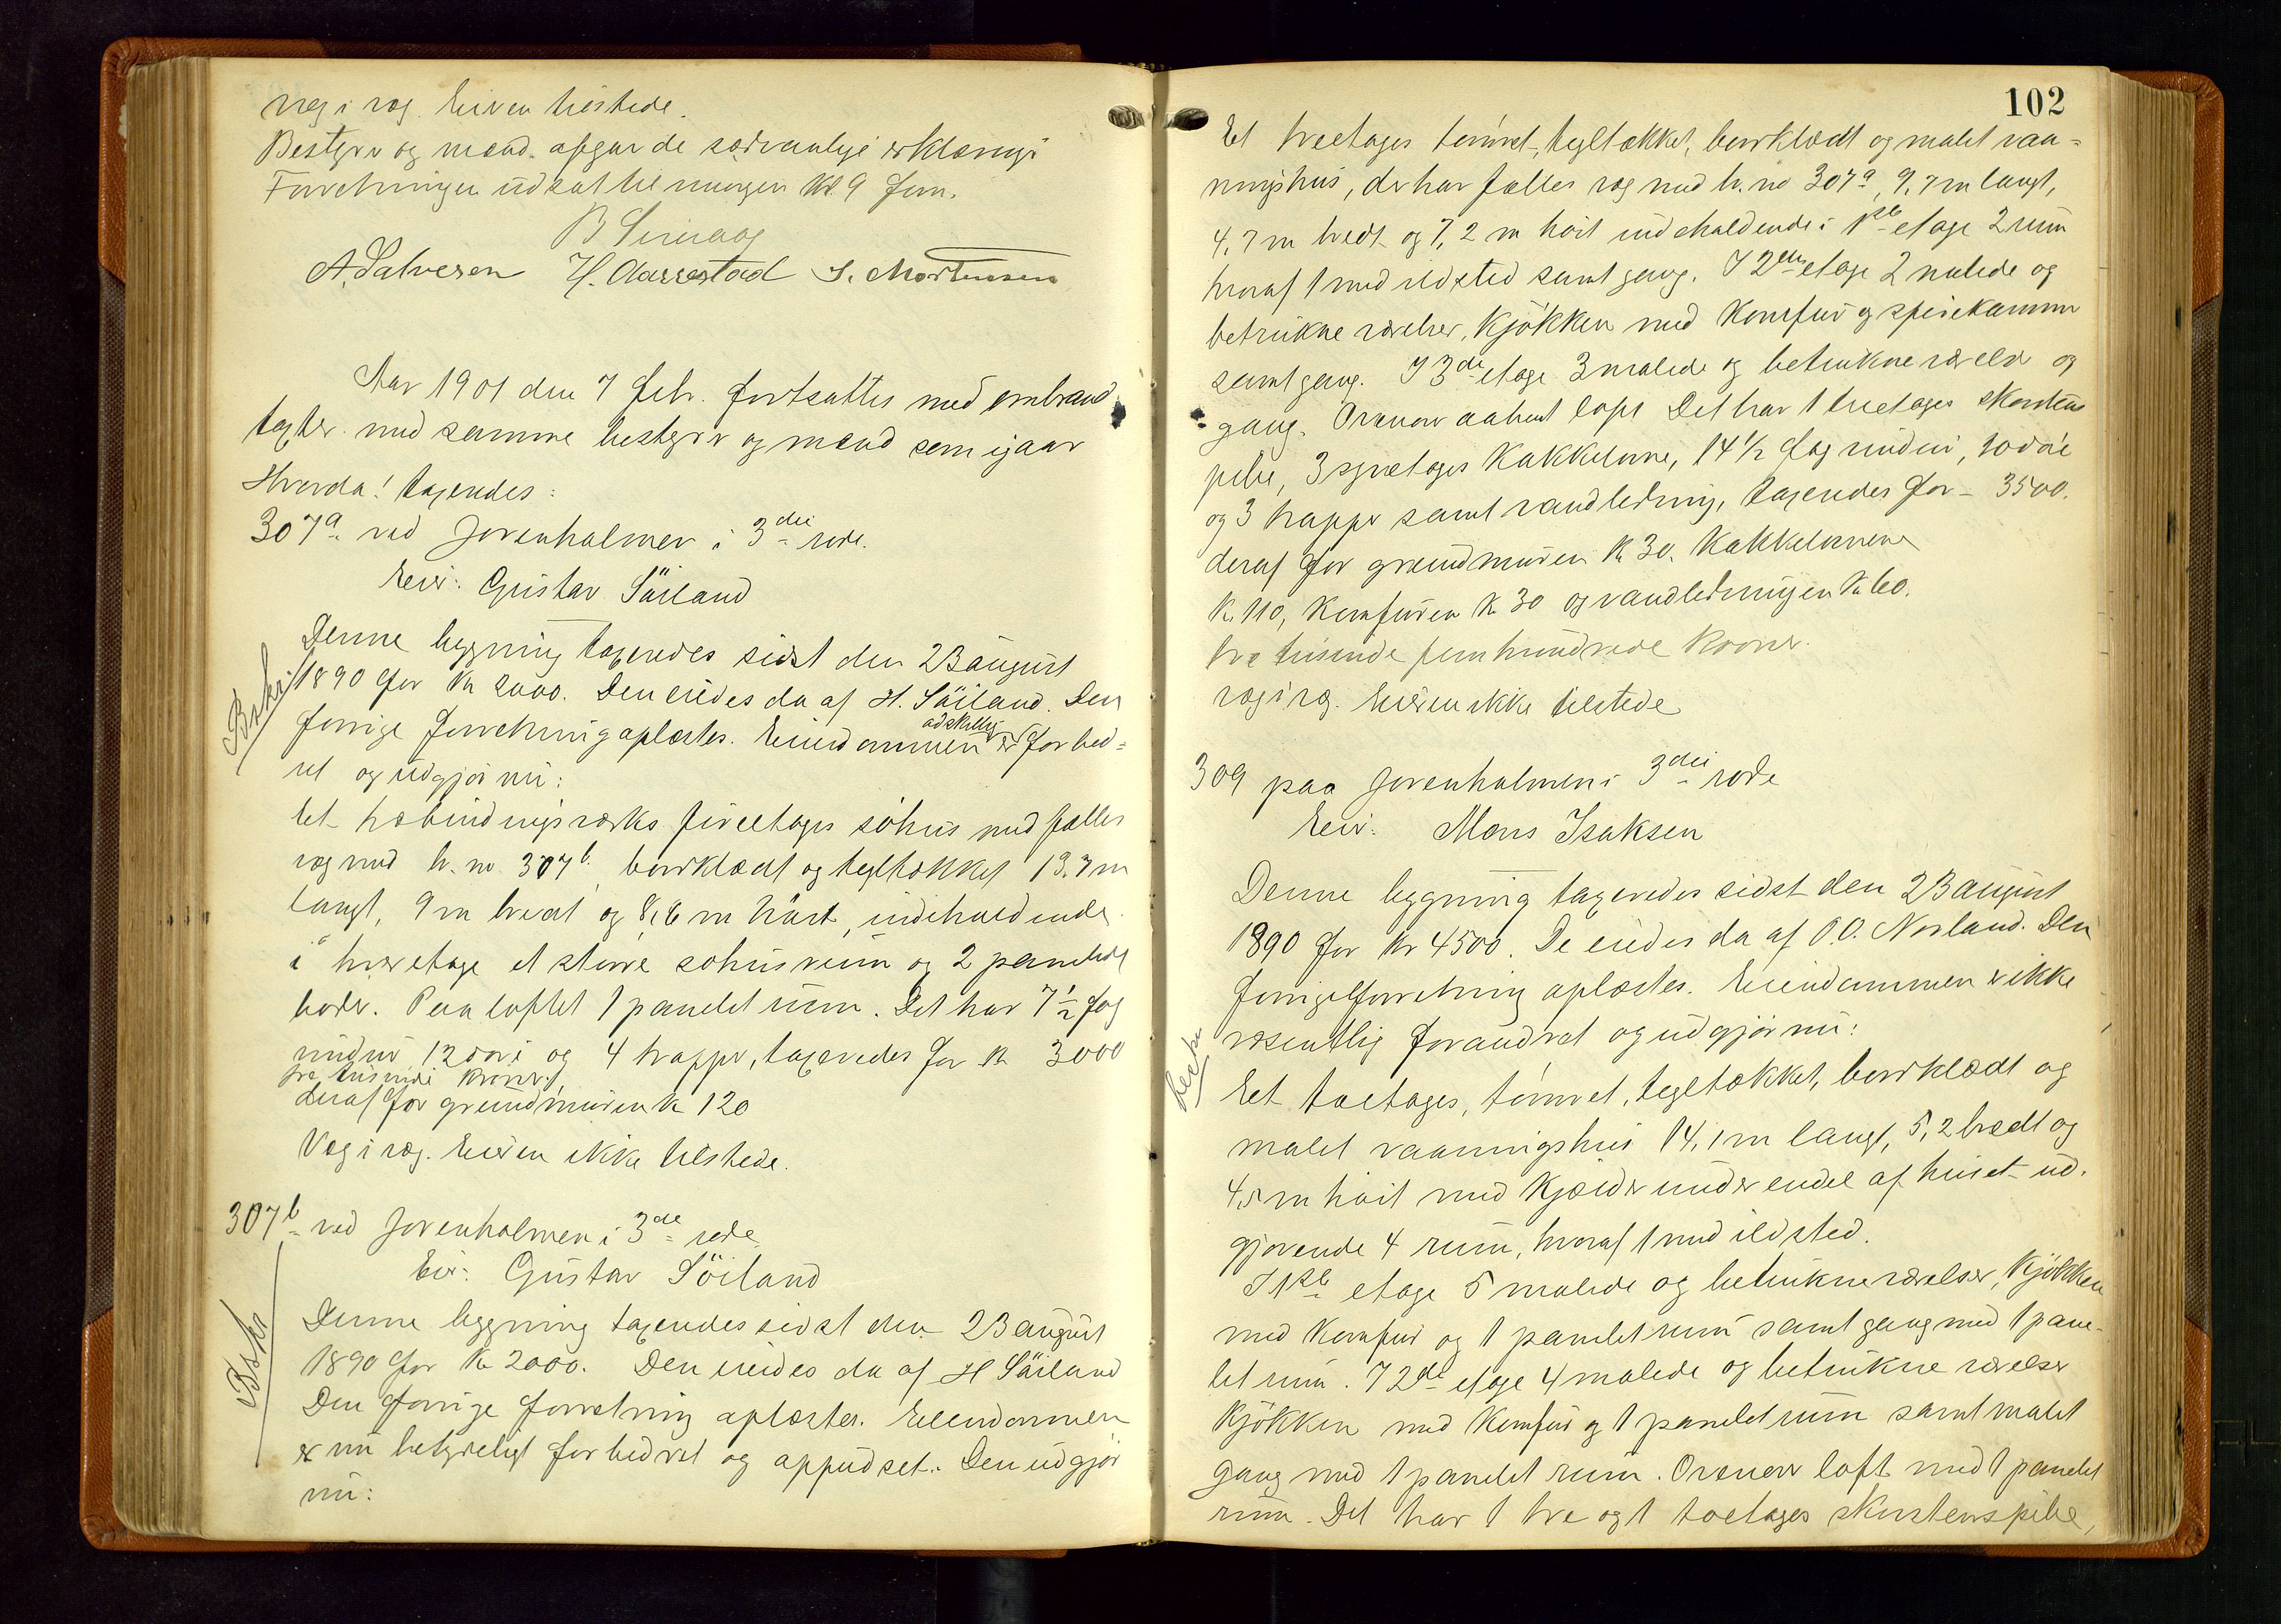 væg i væg. Eieren tilstede.
Bestyrer og mænd afgav de sædvanlige erklæringer
Forretningen udsat til morgen kl. 9 form.
A. Salvesen H. Aarrestad S. Mortensen
Aar 1901 den 7 febr. fortsattes med ombrand
taxter med samme bestyrer og mænd som igaar
Hvorda! taxeredes:
307a ved Jovenholmen i 3die rode.
Eier: Gustav Söiland
Denne bygning taxeredes sidst den 23 august
1890 for Kr 2000. Den eiedes da af H. Söiland. Den
forrige forretning oplæstes. Eiendommen er adskillig forbed=
ret og udgjör nu:
Et træbindingsværks fireetages söhus med fælles
væg med br. no 307b. bordklædt og tegltækket 13.7 m
langt, 9 m bredt og 8,6 m höit, indeholdende
i hver etage et större söhusrum og 2 panelede
boder. Paa loftet 1 panelet rum. Det har 7½ fag
vinduer 12 döre og 4 trapper, taxeredes for kr 3000
tre tusinde kroner,
deraf for grundmuren kr 120
Væg i væg. Eieren ikke tilstede.
307b ved Jovenholmen i 3de rode
Eier: Gustav Söiland
Bskr
Denne bygning taxeredes sidst den 23 august
1890 for Kr 2000. Den eiedes da af H Söiland
Den forrige forretning oplæstes. Eiendommen
er nu betydeligt forbedret og oppudset. Den udgjör
nu:
102
Et treetages tömret, tegltækket, bordklædt og malet vaa=
ningshus, der har fælles væg med br. no 307a, 9,7 m langt,
4,7 m bredt og 7,2 m höit indeholdende i 1ste etage 2 rum
hvoraf 1 med ildsted samt gang. I 2den etage 2 malede og
betrukne værelser, Kjökken med Komfur og spisekammer
samt gang. I 3de etage 3 malede og betrukne værelser og
gang. Ovenover aabent loft Det har 1 treetages skorstens
pibe, 3 Kakkelovne, 14½ fag vinduer, döre
og 3 trapper samt vandledning, taxeredes for 3500.
deraf for grundmuren Kr 30. Kakkelovnene
Kr. 110, Komfuren Kr 30 og vandledningen Kr 60.
tre tusinde femhundrede Kroner.
væg i væg. Eieren ikke tilstede
309 paa Jovenholmen i 3die rode
Eier: Mons Isaksen
Denne bygning taxeredes sidst den 23 august
1890 for Kr 4500. De eiedes da af O.O. Norland. Den
forrige forretning oplæstes. Eiendommen er ikke
væsentlig forandret og udgjör nu:
Et toetages, tömret, tegltækket, bordklædt og
malet vaaningshus 14,1 m langt, 5,2 bredt og
4,5 m höit med Kjælder under endel af huset ud.
gjörende 4 rum, hvoraf 1 med ildsted.
I 1ste etage 5 malede og betrukne værelser, Kjökken
med Komfur og 1 panelet rum samt gang med 1 pane-
let rum. I 2de etage 4 malede og betrukne værelser
Kjökken med Komfur og 1 panelet rum samt malet
gang med 1 panelet rum. Ovenover loft med 1 panelet
rum. Det har 1 tre og 1 toetages skorstenspibe,